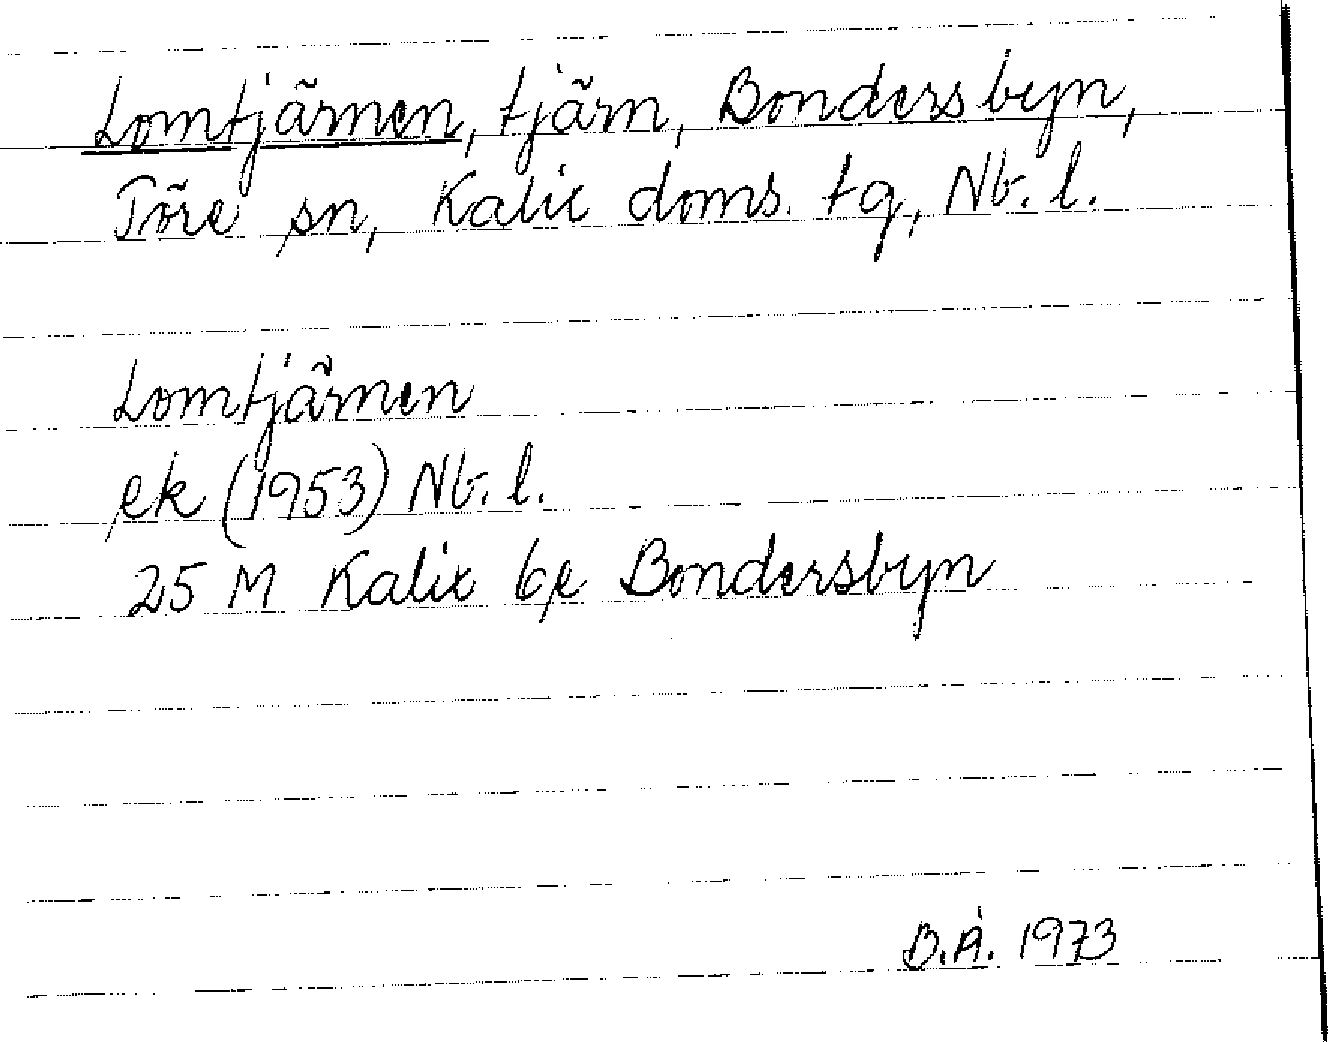 Lomtjärnen, tjärn, Bondersbyn,
Töre sn, Kalix doms. tg, Nb. l.
Lomtjärnen
ek (1953) Nb. l.
25 M Kalix 6e Bondersbyn
B.Å. 1973